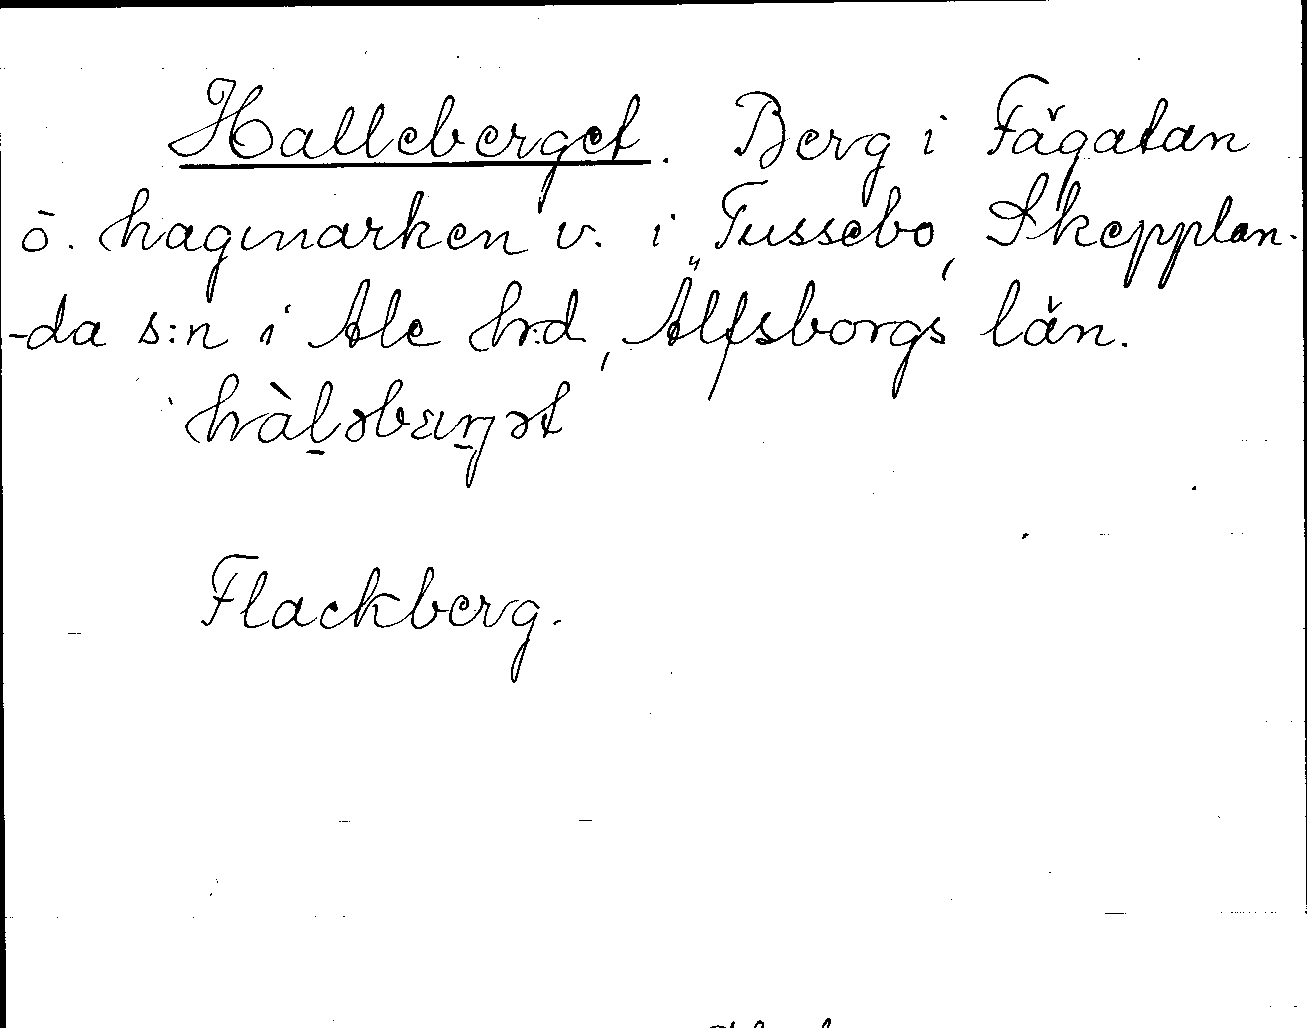 Halleberget. Berg i Fägatan
ö. hagmarken v. i Tussebo, Skepplan-
-da s:n i Ale hrd, Älfsborgs län.
Flackberg.